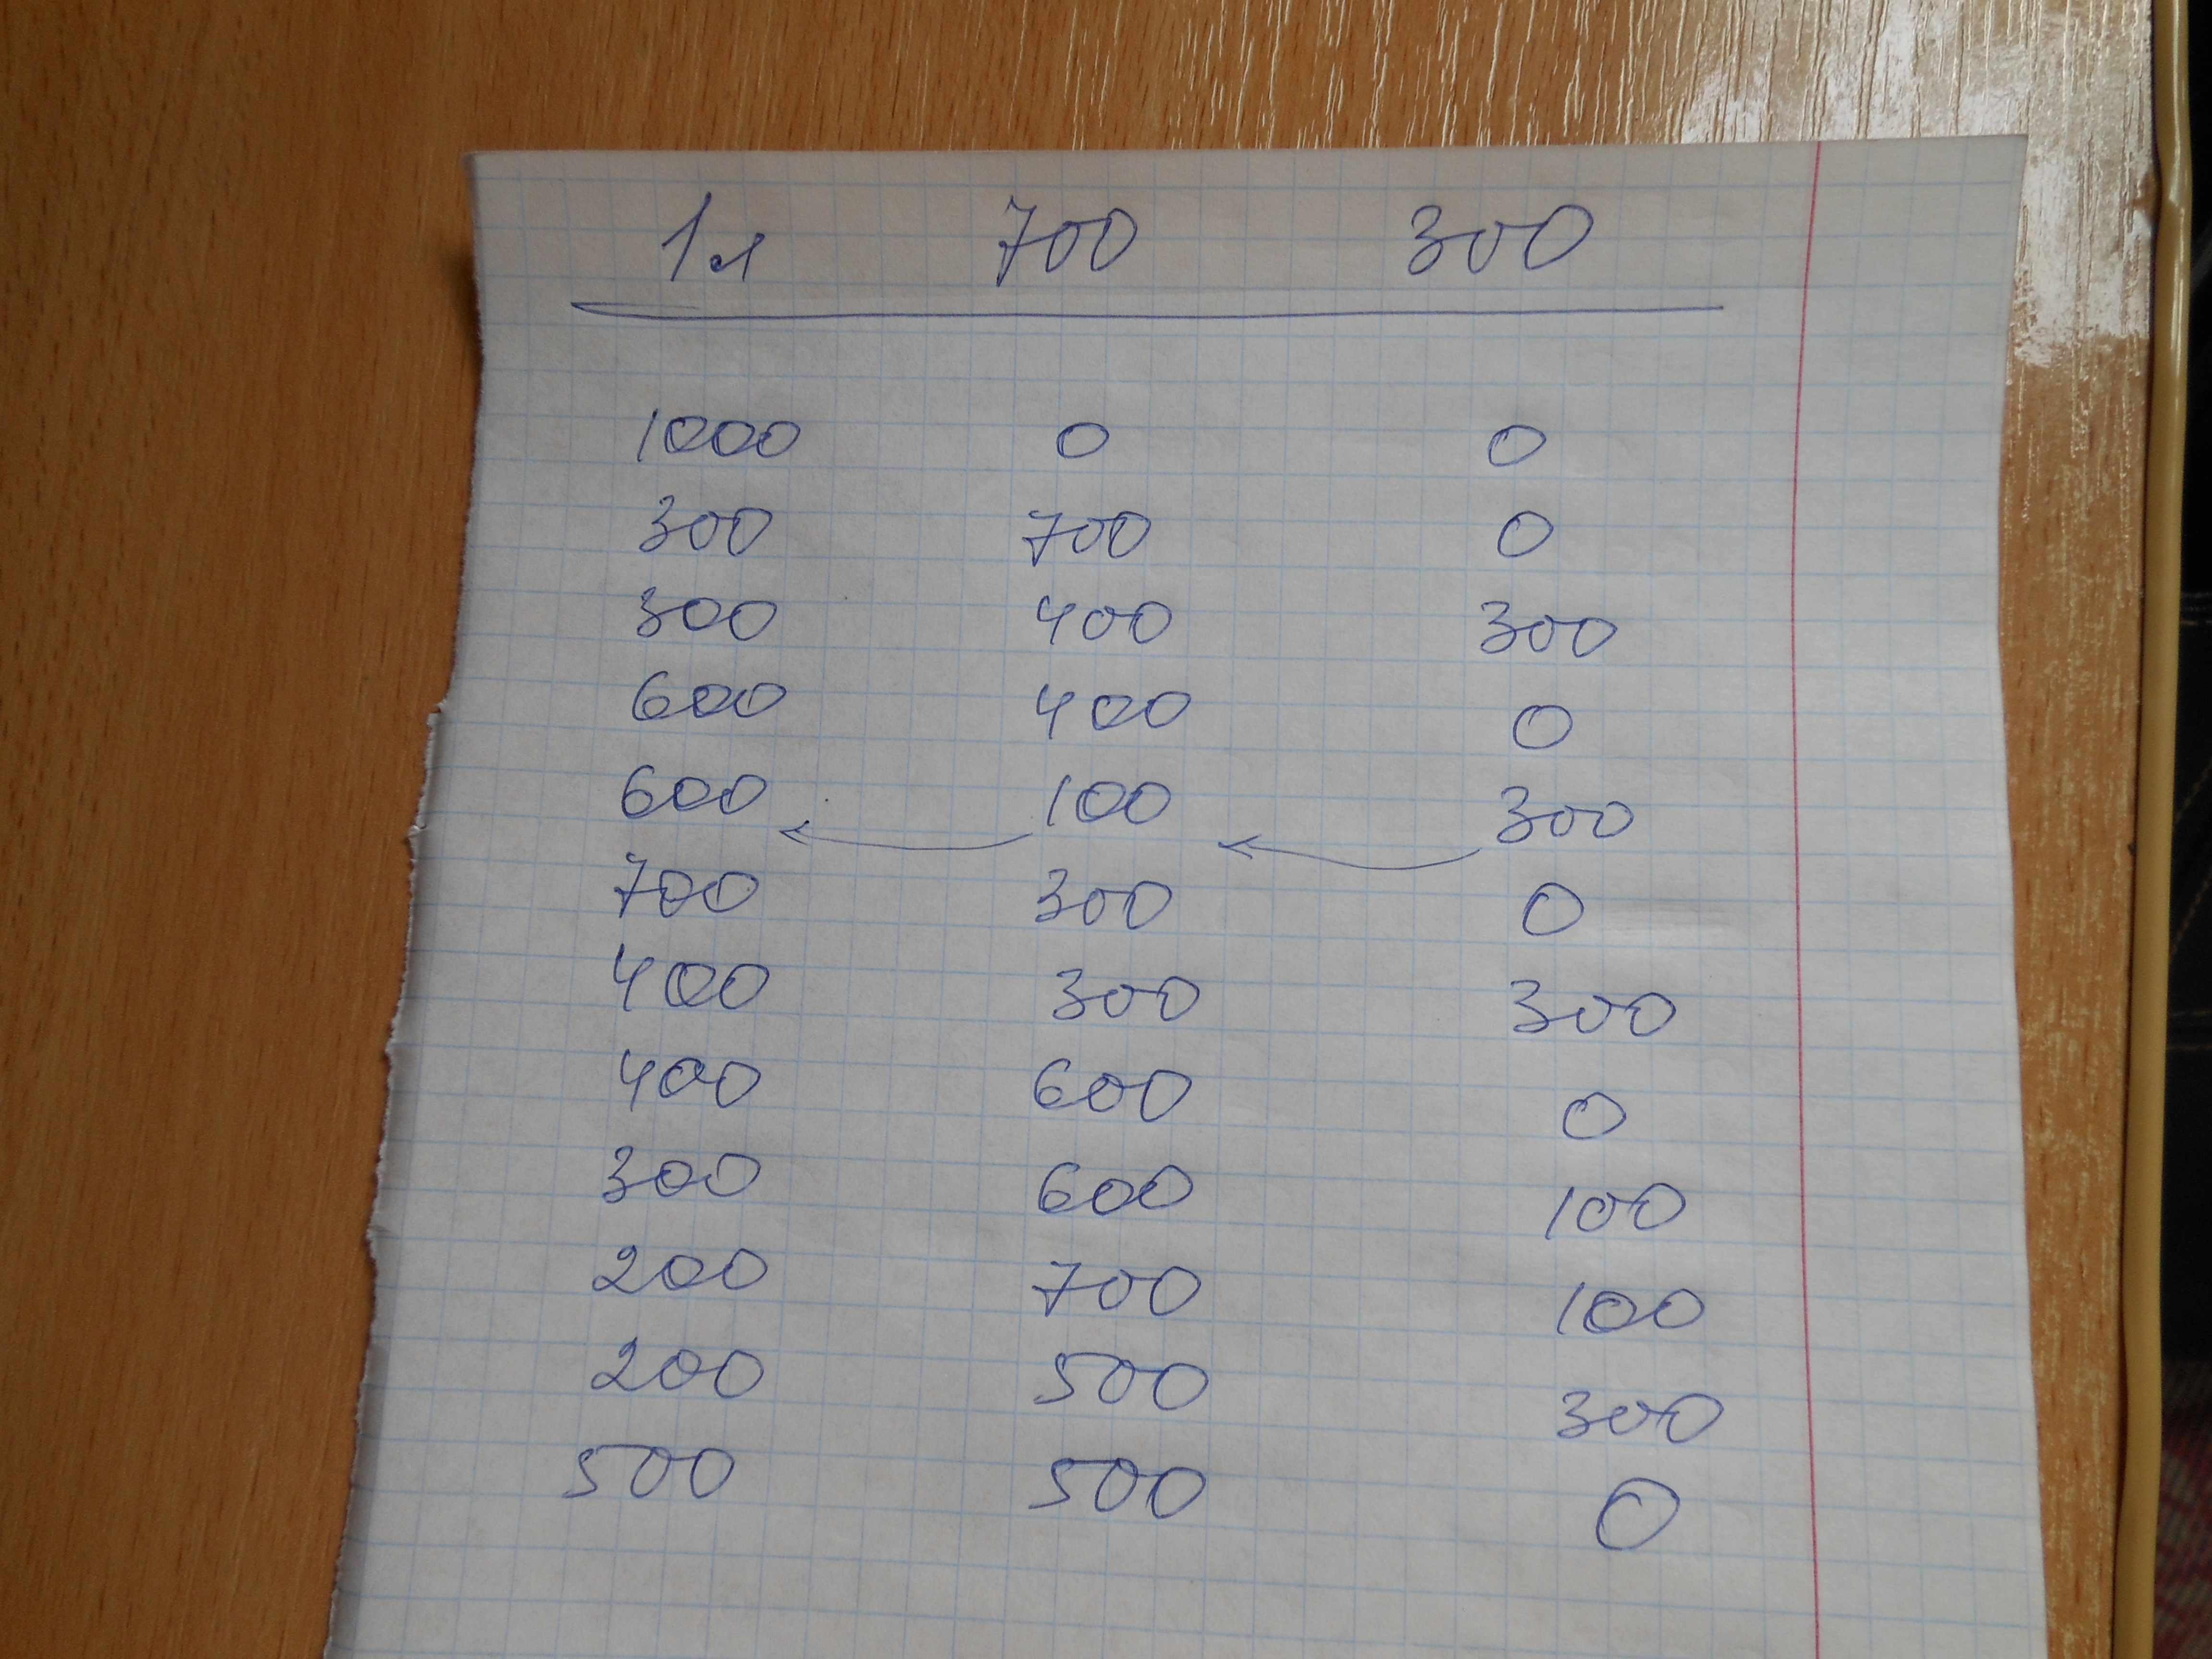 1л 700 300
1000 0 0
300 700 0
300 400 300
600 400 0
600 100 300
700 300 0
400 300 300
400 600 0
300 600 100
200 700 100
200 500 300
500 500 0